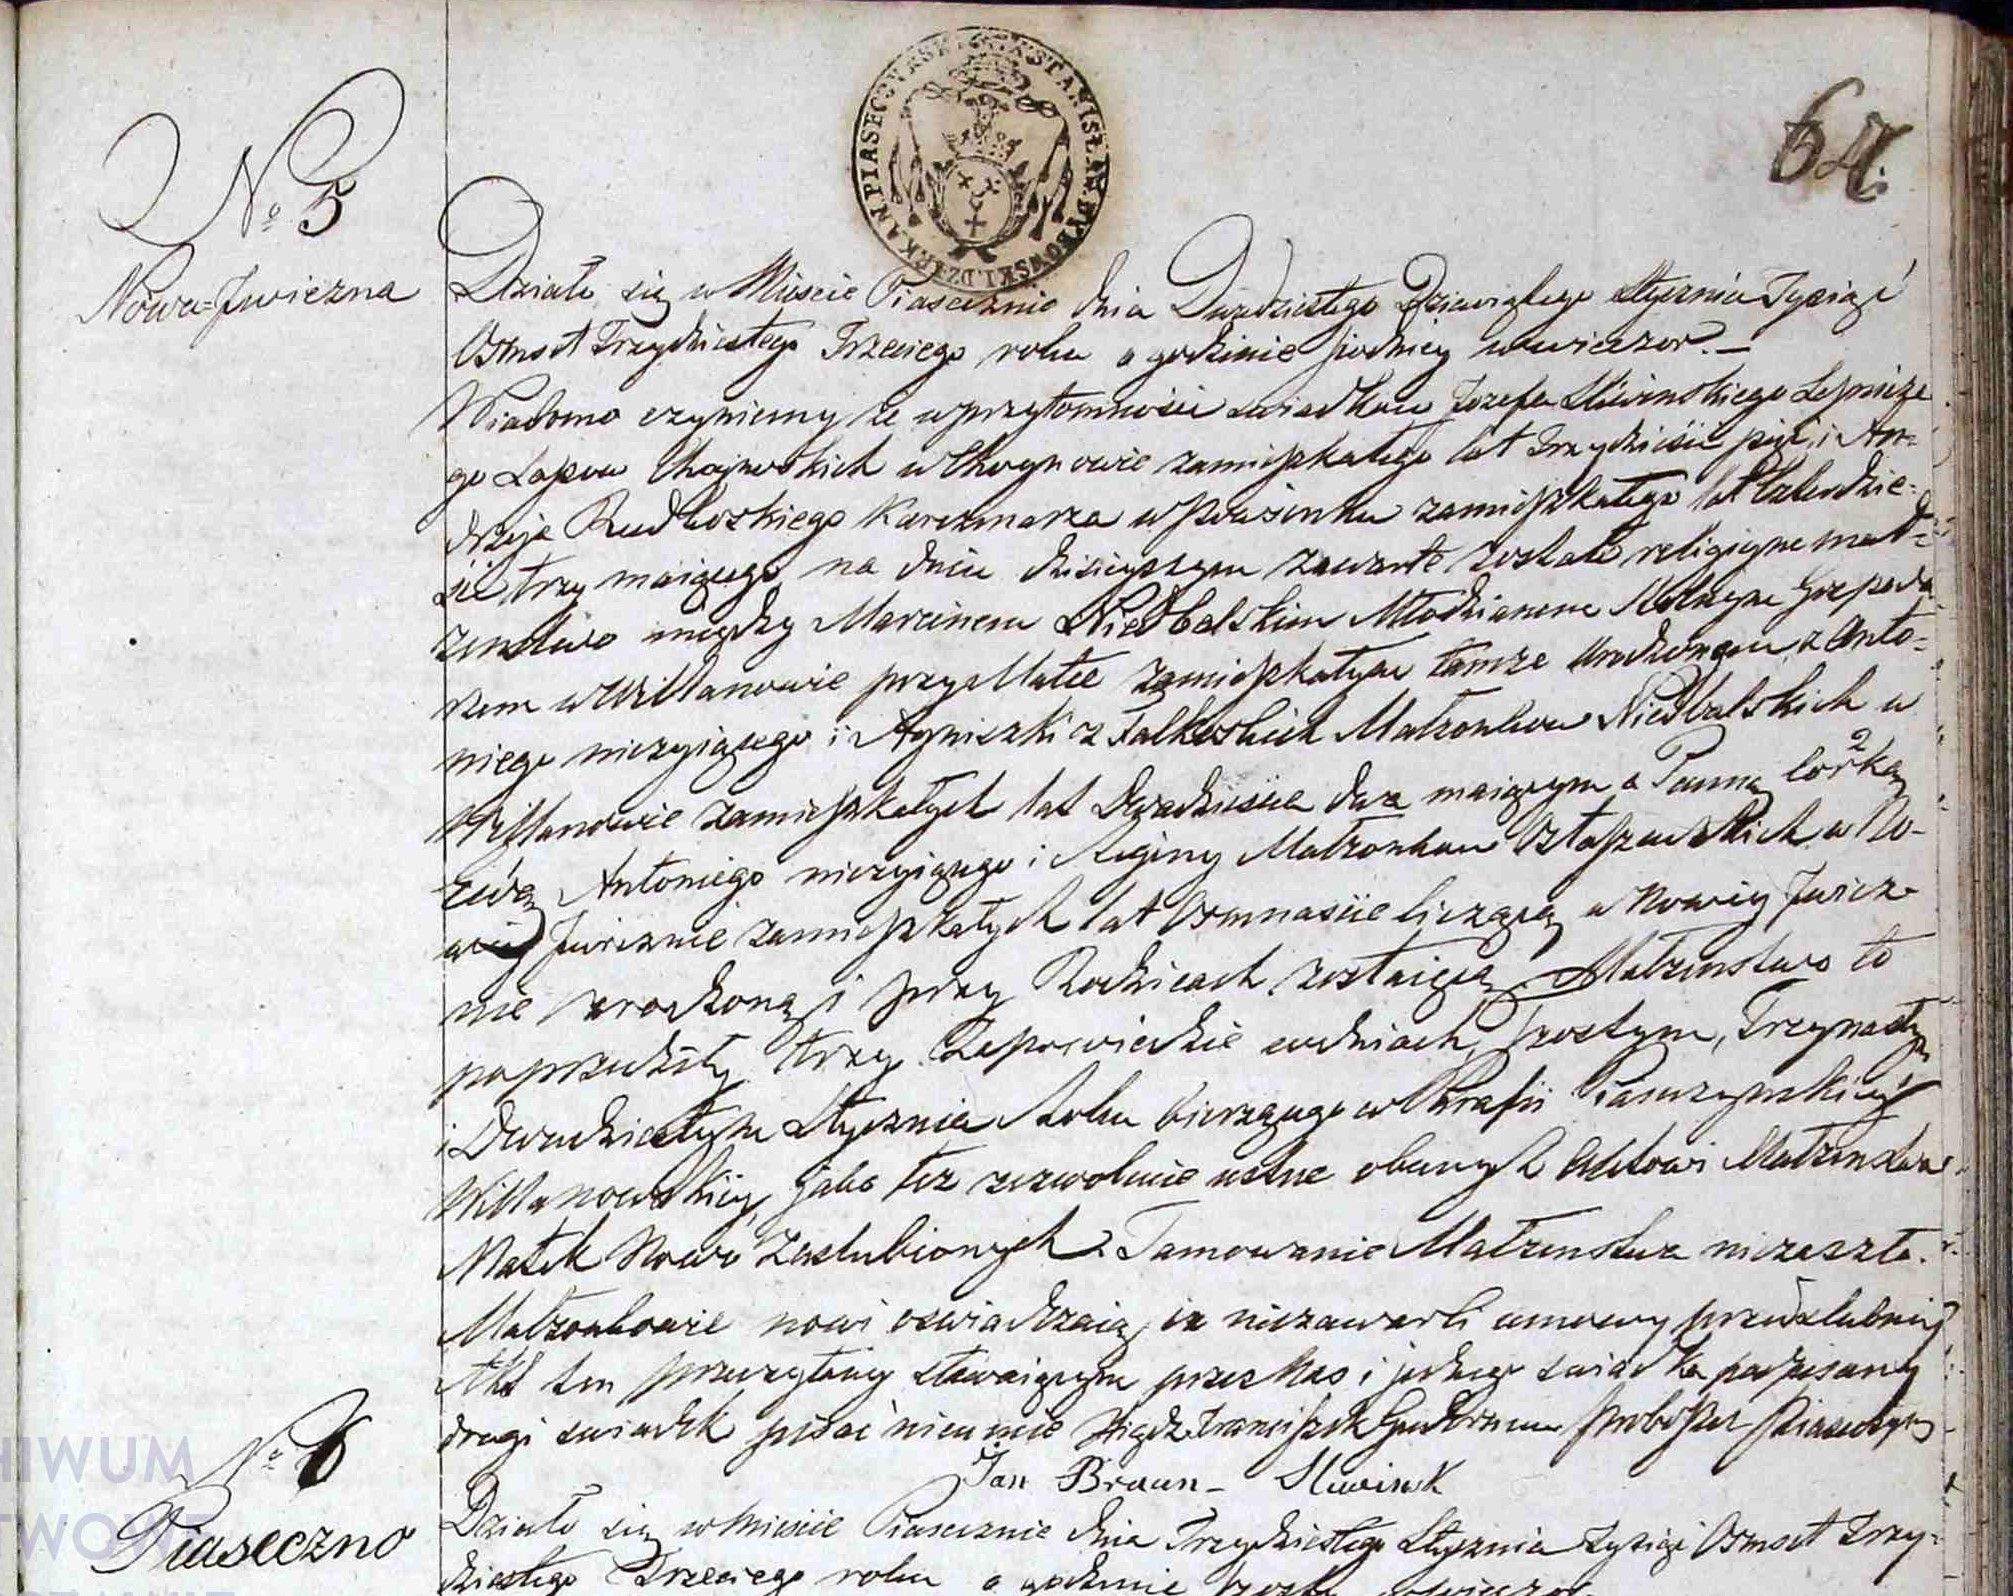 64.
No 5
Nowa=Jwiczna
Działo się w Mieście Piasecznie dnia Dwudziestego Dziewiątego Stycznia Tysiąć
Osmset Trzydziestego Trzeciego roku o godzinie siodmey wwieczor.—
Wiadomo czyniemy że wprzytomności swiadkow Jozefa Sliwinskiego Lesnicze
go Lasow Choynowskich w Choynowie zamieszkałego lat Trzydzieście pięć, i An=
drzeja Rudkoskiego Karczmarza w zamieszkałego lat Czterdzie=
ście trzy maiącego, na dniu dzisieyszym zawarte zostało religiyne mał=
żenstwo między Marcinem Niedbalskim Młodzianem Rolnym Gospoda
rzem w Willanowie przy Matce zamieszkałym tamże urodzonym z Anto=
niego nieżyiącego i Agnieszki z Falkoskich Małżonkow Niedbalskich w
Willanowie zamieszkałych lat Dwadzieście dwa maiącym a Panną Corką
Ewą Antoniego nieżyiącego i Reginy Małżonkow w No-
wey Jwicznie zamieszkałych lat Osmnaście liczącą w Nowey Jwicz-
nie urodzoną i przy Rodzicach zostaiącą. Małżenstwo to
poprzedziły trzy Zapowiedzie wdniach, szostym, Trzynastym
i Dwudziestym Stycznia Roku bierzącego w Parafii Piaseczynskiey
Willanowskiey, jako też zezwolenie ustne obecnych Aktowi Małżenstwa
Matek Nowo Zaslubionych. Tamowanie Małżenstwa niezaszło.
Małżonkowie nowi oswiadczaią, iż niezawarli umowy przedslubney
Akt ten przeczytany stawaiącym przez Nas i jednego swiadka podpisany
drugi swiadek pisać nieumie Xiądz Franciszek Proboszcz Piaseczyn
Jan Braun - Sliwinsk
No 6
Piaseczno
Działo się w Mieście Piasecznie dnia Trzydziestego Stycznia Tysiąc Osmset Trzy=
dziestego Trzeciego roku o godzinie